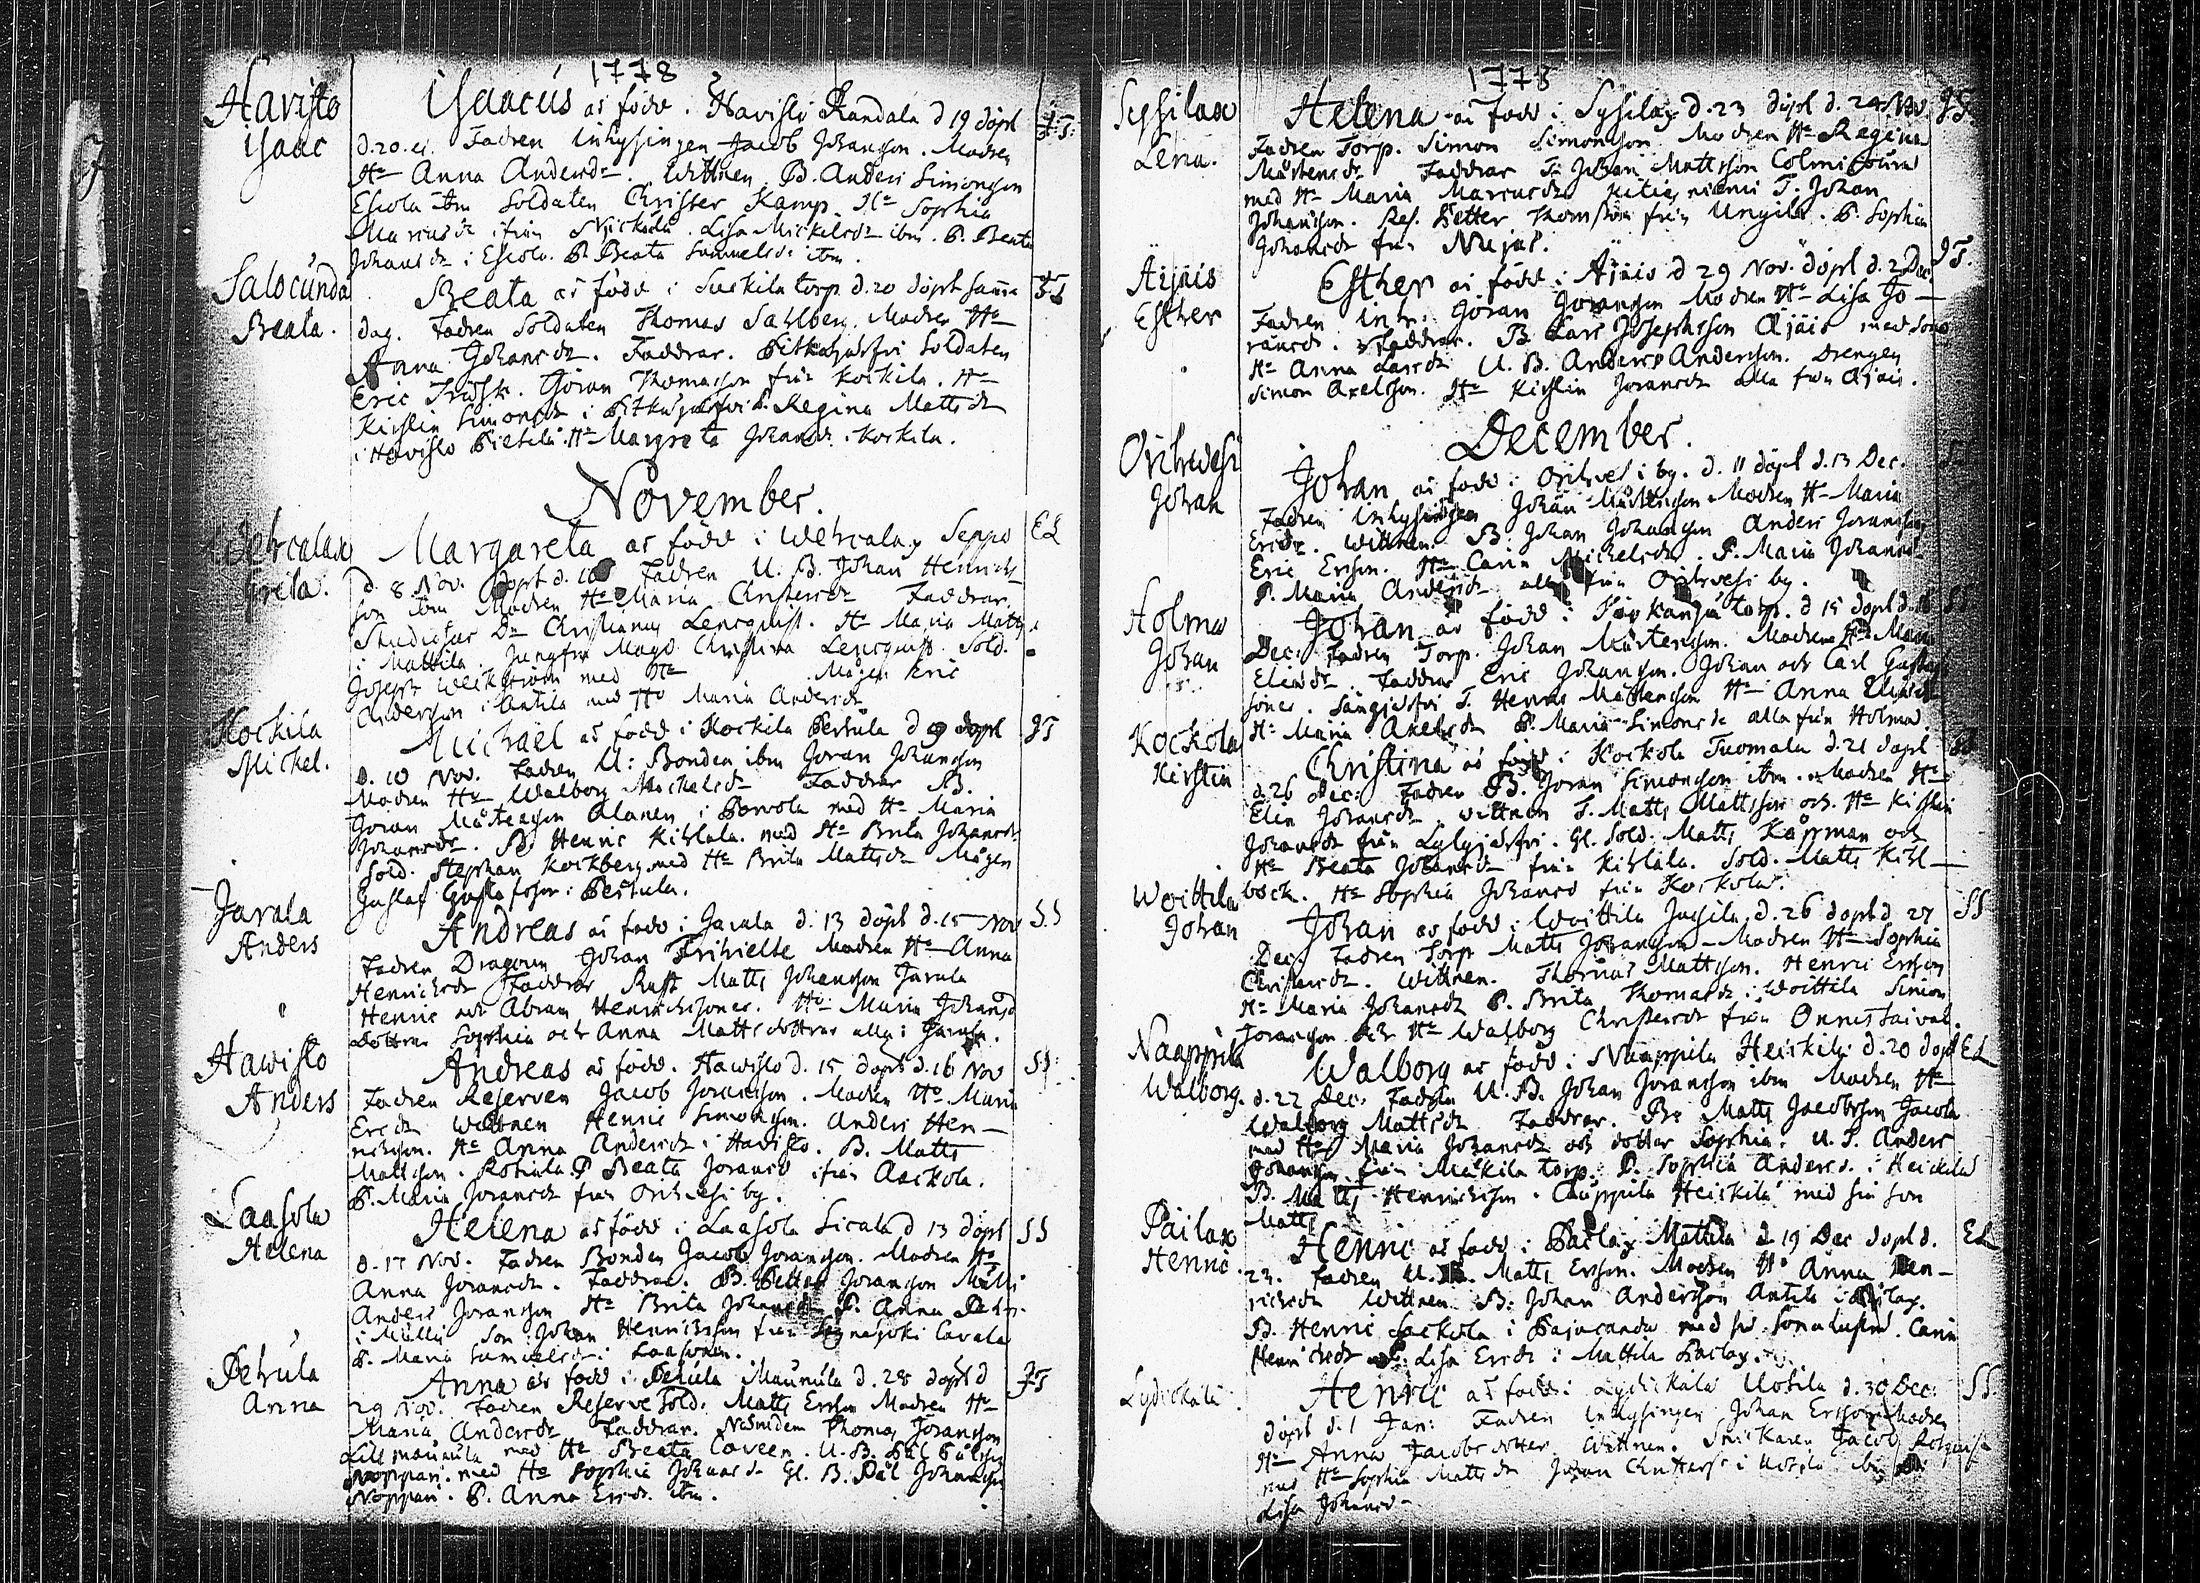 1778
Havisto Isaac
Isaacus är född i Havisto Randala d 19 döpt
d. 20. ej. Fadren Inhysingen Jacob Johansson. Modren
Ho Anna Andersdr. Wittnen B. Anders Simonsson
Eskola ibm Soldaten Christer Kamp. Ho Sophia
Marcusdr ifrån Nickola. Lisa Mickelsdr ibm. P. Beata
Johansdr i Eskola. P. Beata Samuelsdr ibm.
Salocunda Beata.
Beata är född i Suckila torp d. 20 döpt samma
dag. Fadren Soldaten Thomas Sahlberg. Modren Ho
Anna Johansdr. Faddrar. Pitkäjärfvi Soldaten
Eric Frisk. Göran Thomasson från Kockila. Ho
Kirstin Simonsdr i Pitkäjärfvi P. Regina Mattsdr
i Havisto Pietilä. Ho Margreta Johansdr. Kockila.
November.
Wehcalax Greta.
Margareta är född i Wehcalax Seppo EL
d. 8 Nov. döpt d. 10 Fadren U. B. Johan Henrics
son ibm Modren Ho Maria Christersdr Faddrar
Studiosus Dn Christianus Lencquist. Ho Maria Matts
i Mattila. Jungfru Magd. Christina Lencquist. Sold.
Joseph med Ho Mågen Eric
Andersson i Antila med Ho Maria Andersdr
Kockila Mickel.
Michael är född i Kockila Perttula d 9 döpt JT
d. 10 Nov. Fadren U: Bonden ibm Göran Johansson
Modren Ho Walborg Michelsdr Faddrar B.
Göran Mårtensson Alanen i Porvola med Ho Maria
Johansdr. B. Henric Kihlala med Ho Brita Johansdr
Sold. Stephan Kockberg med Ho Brita Mattsdr Mågen
Gustaf Gustafsson i Perttula.
Javala Anders
Andreas är född i Javala d. 13 döpt d. 15 Nov SS
Fadren Dragoun Johan Frihielte Modren Ho Anna
Henricsdr Faddrar Rust. Matts Johansson Javala
Henric och Abram Henricssöner. Ho Maria Johans
dotter Sophia och Anna Mattsdöttrar alla i Javala.
Hawisto Anders
Andreas är född i Hawisto d. 15 döpt d. 16 Nov SS
Fadren Reserven Jacob Joransson. Modren Ho Maria
Ericdr Wittnen Henric Simonsson. Anders Hen-
ricsson. Ho Anna Andersdr i Havisto. B. Matts
Mattsson. Rotula P Beata Joransd ifrån Aackola.
P. Maria Joransdr från Orihvesi by.
Laasola Helena
Helena är född i Laasola Sicala d 13 döpt SS
d. 17 Nov. Fadren Bonden Jacob Joransson. Modren Ho
Anna Joransdr. Faddrar. B. Petter Joransson Mulli
Anders Joransson Ho Brita Johansdr P. Anna Pehrs
i Mulli Son Johan Henricsson från Lavala
P. Maria Samuelsdr i Laasonen.
Pehula Anna
Anna är född i Pehula Maunula d. 28 döpt d JT
29 Nov. Fadren Reserve Sold. Matts Ersson Modren Ho
Maria Andersdr Faddrar. Nämdem Thomas Joransson
Lill maunula med Ho Beata Caveen. U. B. Påhl Påhlsson
Noppari. med Ho Sophia Johansdr Gl. B. Pål Johansson
Noppari. P. Anna Ersdr ibm.
1778
Syssilax Lena.
Helena är född i Sysilax d. 23 döpt d. 24 Nov JT
Fadren Torp. Simon Simonsson Modren Ho Regina
Mårtensdr Faddrar T: Johan Mattsson Colmicoura
med Ho Maria Marcusdr Kitiäniemi T. Johan
Johansson. Res. Petter Thomsson från Ungila. P. Sophia
Johansdr från Nujas.
Äijäis Esther
Esther är född i Äijäis d 29 Nov. döpt d. 2 Dec. JT.
Fadren Inh: Göran Göransson Modren Ho Lisa Jo-
ransdr. Faddrar. B Lars Josephsson Äijäis med
Ho Anna Larsdr U. B. Anders Andersson. Drengen
Simon Axelsson. Ho Kirstin Joransdr alla från Äijäis.
December.
Orihvesi Johan
Johan är född i Orihvesi by. d. 11 döpt d. 13 Dec.
Fadren Inhysingen Johan Mårtensson Modren Ho Maria
Ericdr. Wittnen. B. Johan Johansson Anders Joransson
Eric Ersson. Ho Carin Michelsdr. P. Maria Johansd
P. Maria Andersdr alla från Orihvesi by.
Holma Johan
Johan är född i torp. d 15 döpt d. 16 SS
Dec: Fadren Torp. Johan Mårtensson. Modren Ho Maria
Eliædr Faddrar Eric Johansson. Johan och Carl Gustaf
söner. Särgjärfvi T. Henric Mårtensson Ho Anna
Ho Maria Axelsdr P. Maria Simonsdr alla från Holma
Kockola Kirstin
Christina är född i Kockola Tuomala d. 21 döpt
d. 26 Dec: Fadren B. Göran Simonsson ibm. Modren Ho
Elin Johansdr Wittnen T. Matts Mattsson och Ho Kirstin
Johansdr från Lylyjärfvi. Gl. Sold. Matts Kårman och
Ho Beata Johansdr från Kihlala. Sold. Matts Kihl-
bock. Ho Sophia Johansd från Kockola.
Woittila Johan
Johan är född i Woittila Jussila d. 26 döpt d 27 SS
Dec. Fadren Torp Matts Johansson Modren Ho Sophia
Christersdr. Wittnen. Thomas Mattsson. Henric Ersson
Ho Maria Johansdr P. Brita Thomasdr i Woittila Simon
Joransson och Ho Walborg Christersdr från Onnistaival.
Naappila Walborg.
Walborg är född i Naappila Heickilä d. 20 döpt EL
d. 22 Dec. Fadren U. B. Johan Joransson ibm Modren Ho
Walborg Mattsdr Faddrar. B: Matts Jacobsson Jacola
med Ho Maria Johansdr och dotter Sophia. U. T. Anders
Johansson från Mäkilä torp. P. Sophia Anders. i Heickilä
B. Matts Henricsson. Heickilä med sin son
Matts
Päilax Henric.
Henric är född i Päilax Mattila d 19 Dec döpt d. EL
23. Fadren U. B. Matts Ersson. Modren Ho Anna Hen-
ricsdr Wittnen B. Johan Andersson Antila i Päilax.
B. Henric Sackola i Pajucanda med sin Sonahustru. Carin
Henricsdr och P. Lisa Ersdr i Mattila Päilax.
Lyðickälä.
Henric är född i Lydickälä Uotila d. 30 Dec: SS
döpt d. 1 Jan: Fadren Inhysingen Johan Ersson Modren
Ho Anna Jacobs dotter Wittnen. Snickaren Jacob
med Ho Sophia Mattsdr Johan i Uotila ibm
Lisa Johansd